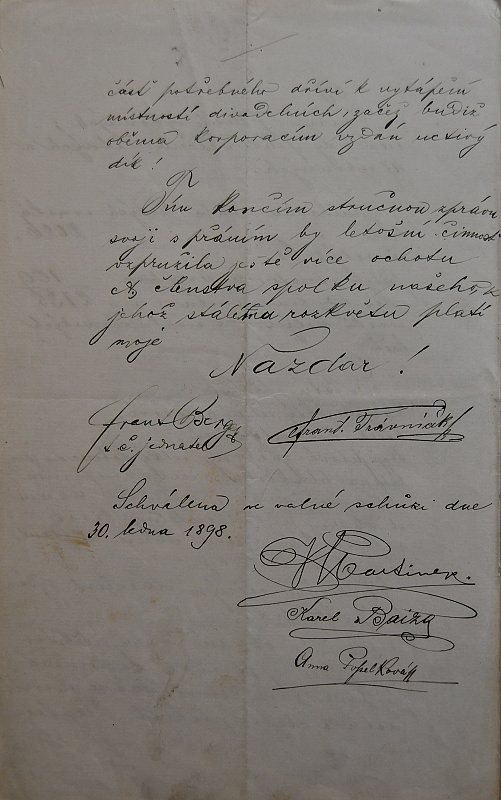 část potřebného dříví k vytápění
místností divadelních, začež budiž
oběma korporacím vzdán uctivý
dík!
Tím končím stručnou zprávu
svoji s přáním by letošní činnost
vzpružila ještě více ochotu
členstva spolku našeho,
jehož stálému rozkvětu platí
moje
Nazdar!
Frant. Trávníček
t. č. jednatel
Schválena ve valné schůzi dne
30. ledna 1898.
Martinek.
Karel
Anna Popelková